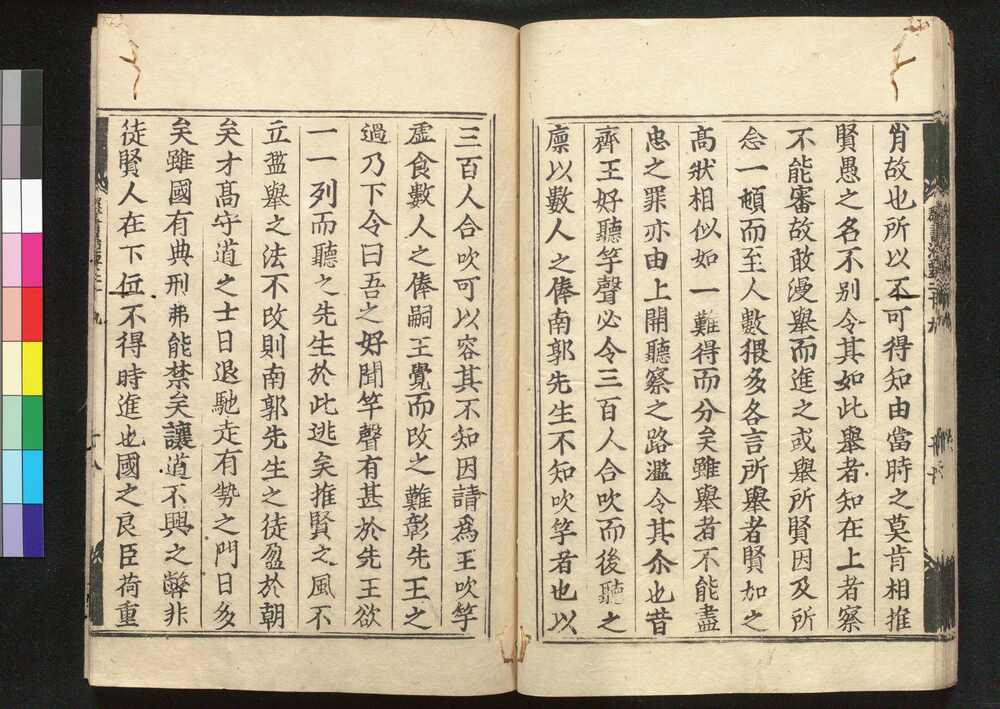 肖故也所以不可得知由當時之莫肯相推
賢愚之名不别令其如此舉者知在上者察
不能審故敢漫舉而進之或舉所賢因及所
念一頓而至人數猥多各言所舉者賢加之
高狀相似如一難得而分矣雖舉者不能盡
忠之罪亦由上開聽察之路濫令其尒也昔
齊王好聽竽聲必令三百人合吹而後聽之
廪以數人之俸南郭先生不知吹竽者也以
三百人合吹可以容其不知因請爲王吹竽
虚食數人之俸嗣王覺而改之難彰先王之
過乃下令曰吾之好聞竽聲有甚於先王欲
一一列而聽之先生於此逃矣推賢之風不
立濫舉之法不改則南郭先生之徒盈於朝
矣才高守道之士日退馳走有勢之門日多
矣雖國有典刑弗能禁矣讓道不興之弊非
徒賢人在下位不得時進也國之良臣荷重
十八